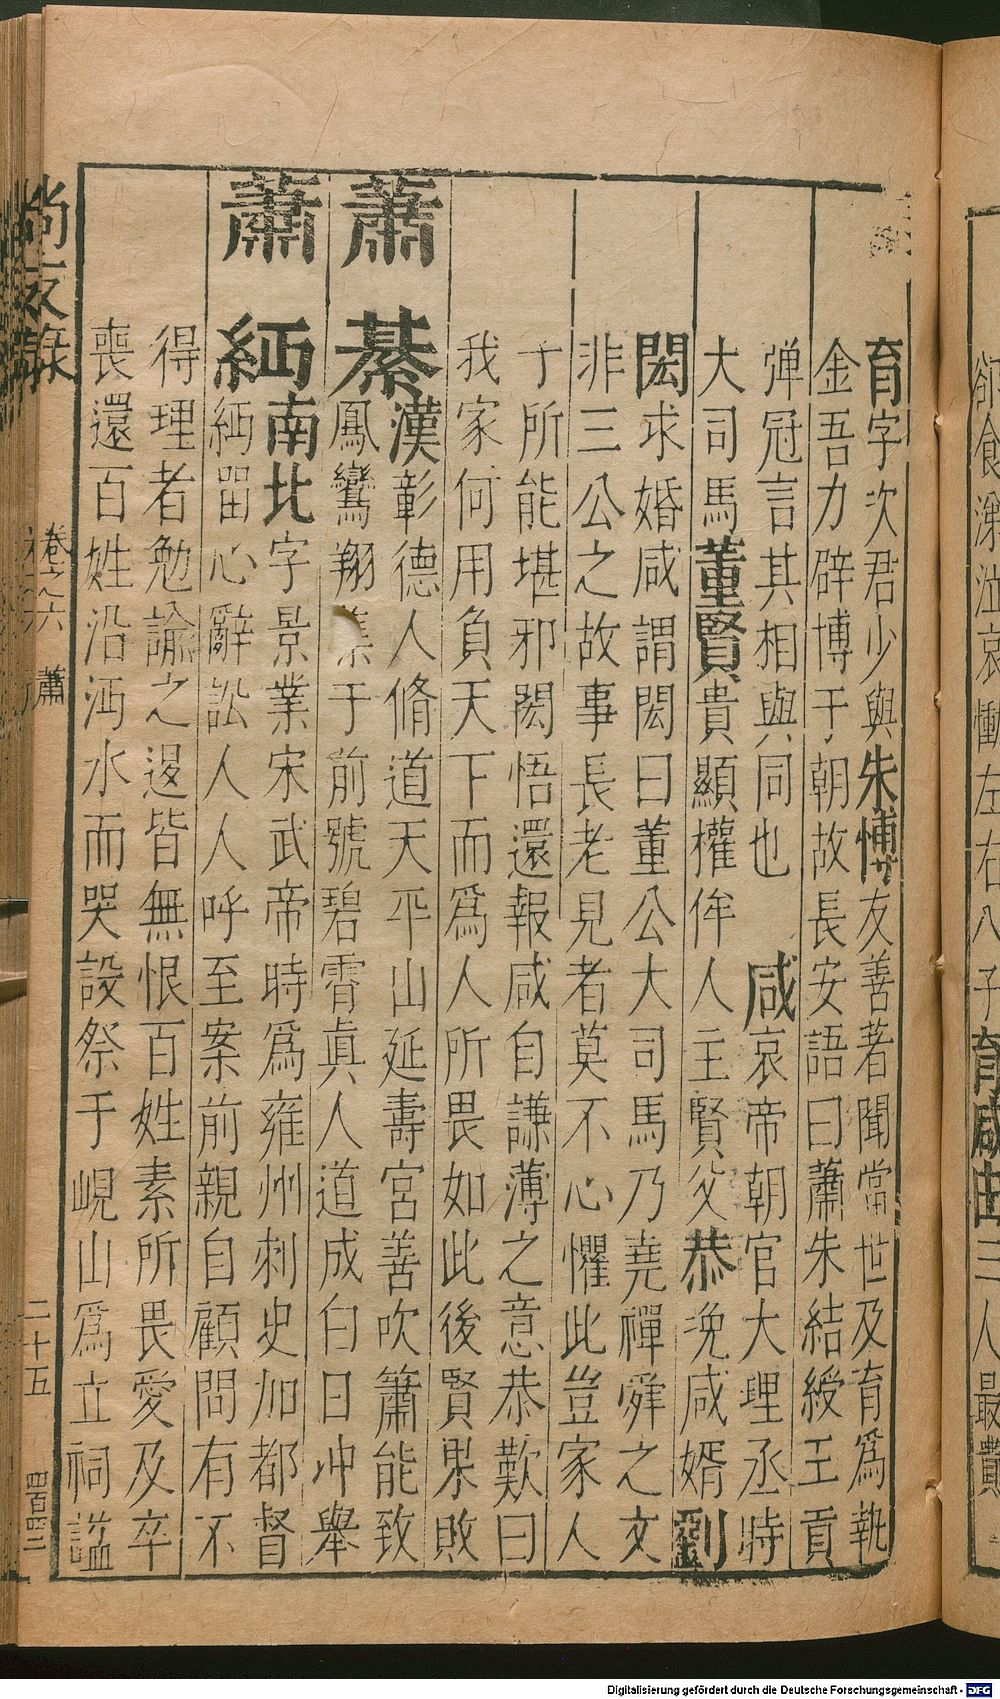 育字次君少與朱博友善著聞當世及育爲執
金吾力辟博于朝故長安語曰蕭朱結綬王貢
彈冠言其相與同也 咸哀帝朝官大理丞時
大司馬董賢貴顯權侔人主賢父恭浼咸婿劉
閎求婚咸謂閎曰董公大司馬乃堯禪舜之文
非三公之故事長老見者莫不心懼此豈家人
子所能堪邪閎悟還報咸自謙薄之意恭歎曰
我家何用負天下而爲人所畏如此後賢果敗
蕭綦漢彰德人脩道天平山延壽宮善吹簫能致
鳳鸞翔集于前號碧霄眞人道成白日冲舉
蕭緬南北字景業宋武帝時爲雍州刺史加都督
緬留心辭訟人人呼至案前親自顧問有不
得理者勉諭之退皆無恨百姓素所畏愛及卒
喪還百姓沿沔水而哭設祭于峴山爲立祠諡
尚友錄 卷之六 蕭 二十五 四百四二
領食涕泣哀慟左右八子育咸由三人最
Digitalisierung gefördert durch die Deutsche Forschungsgemeinschaft - DFG